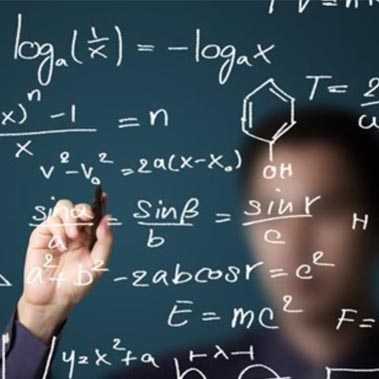 logₐ(1/x) = -logₐx
T = 2
x)ⁿ - 1 / x = n
v² - v₀² = 2a(x - x₀)
OH
sinα / a = sinβ / b = sin r / c
H
a² + b² - 2abcosr = c²
E = mc²
F =
y = x² + a